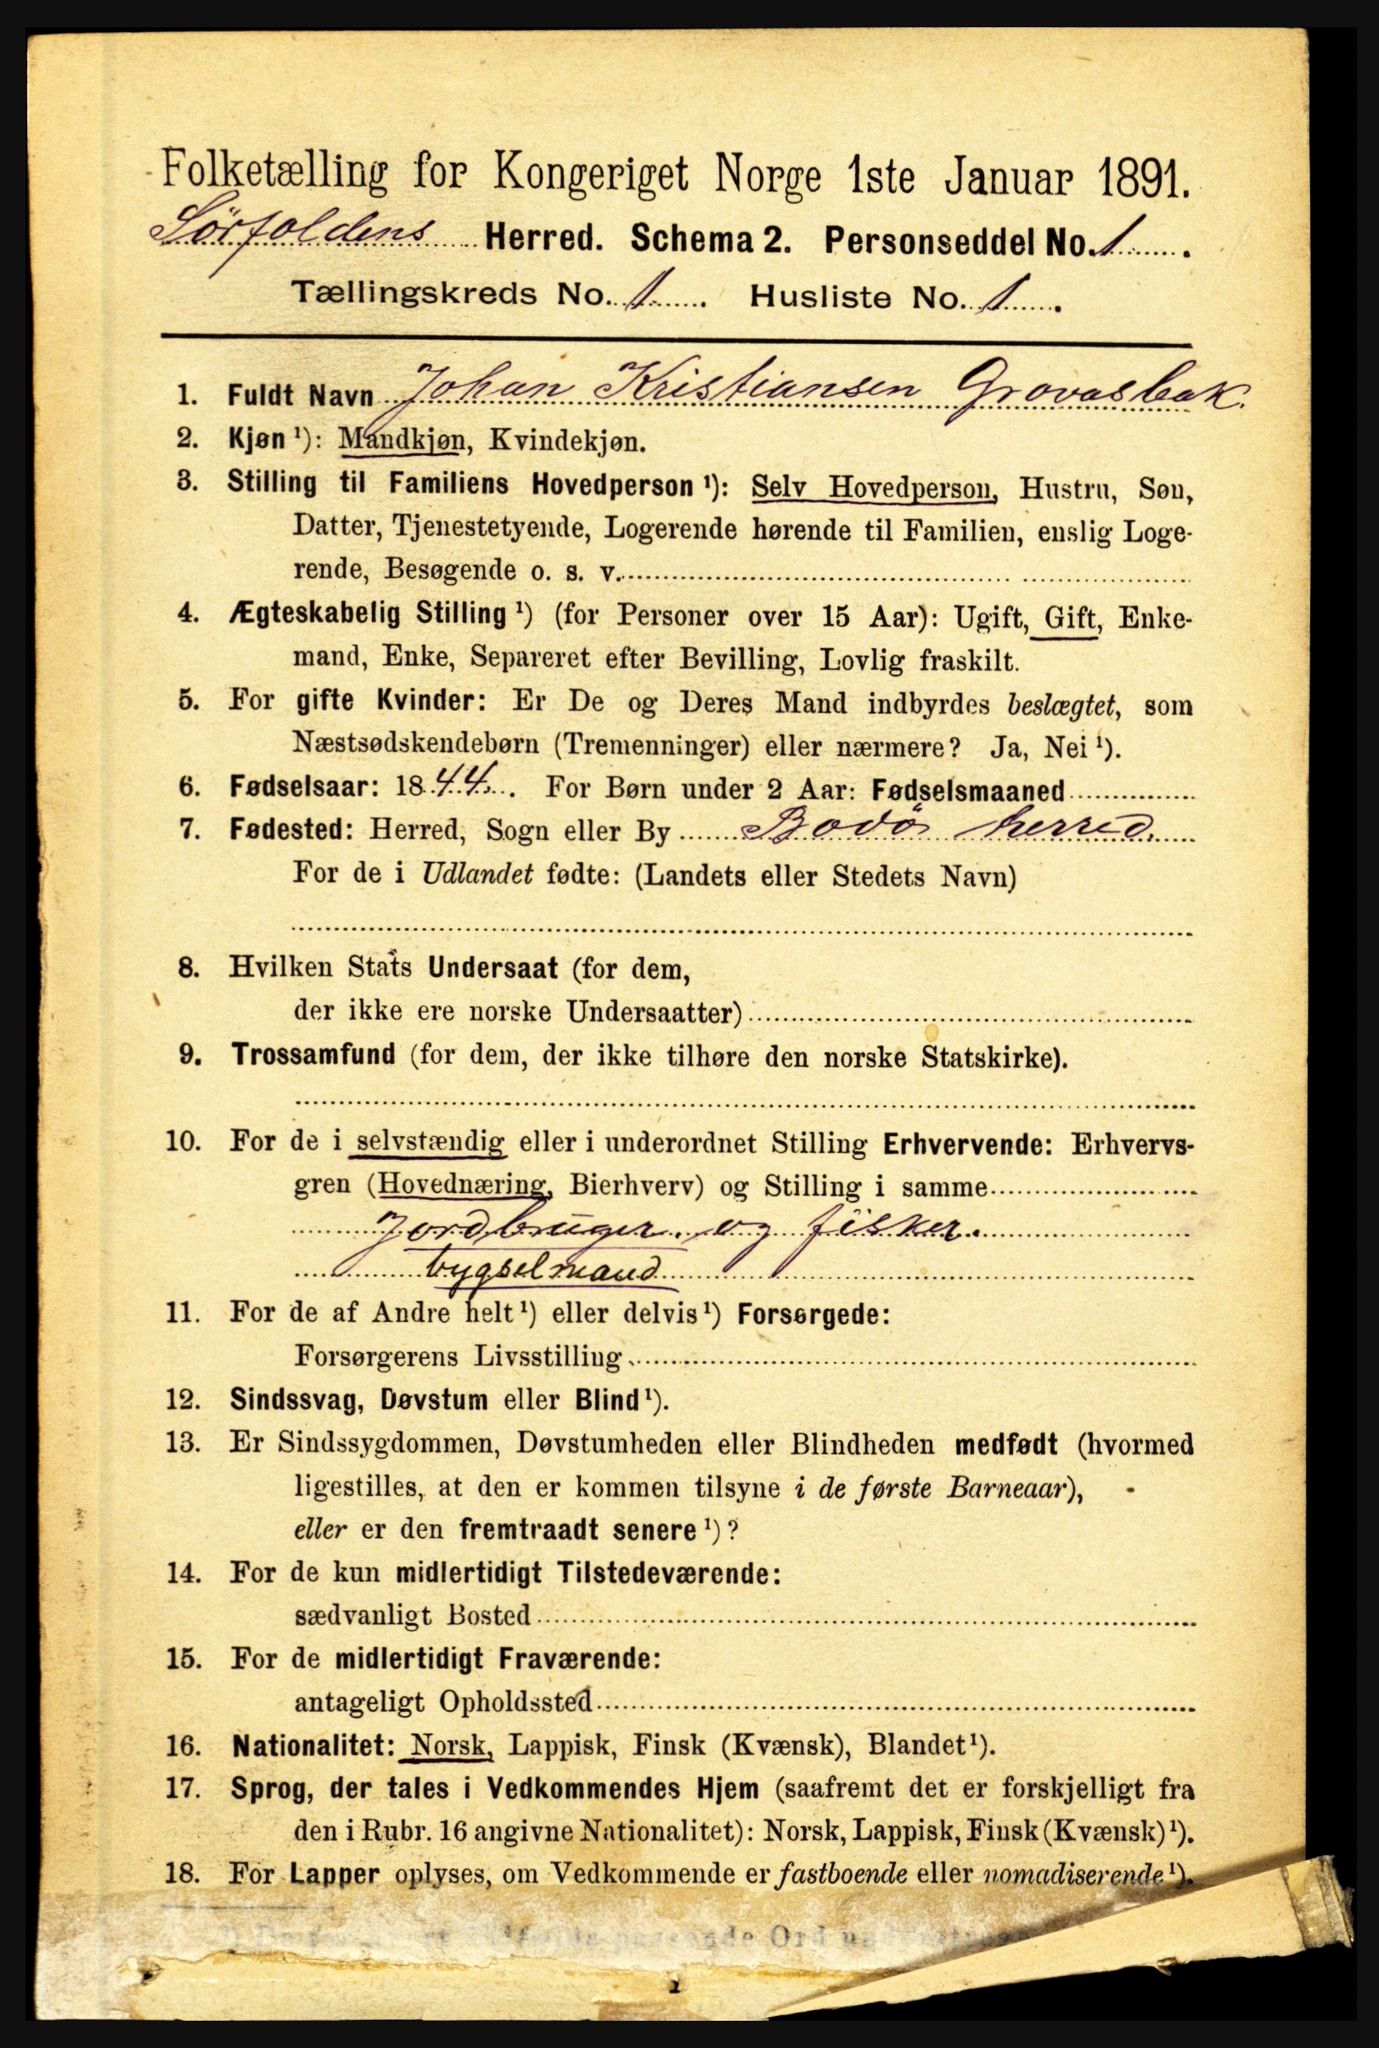 Folketælling for Kongeriget Norge 1ste Januar 1891.
Sörfoldens Herred. Schema 2. Personseddel No. 1.
Tællingskreds No. 1. Husliste No. 1.
1. Fuldt Navn Johan Kristiansen Grovasbak.
2. Kjøn¹): Mandkjøn, Kvindekjøn.
3. Stilling til Familiens Hovedperson¹): Selv Hovedperson, Hustru, Søn,
Datter, Tjenestetyende, Logerende hørende til Familien, enslig Loge-
rende, Besøgende o. s. v.
4. Ægteskabelig Stilling¹) (for Personer over 15 Aar): Ugift, Gift, Enke-
mand, Enke, Separeret efter Bevilling, Lovlig fraskilt.
5. For gifte Kvinder: Er De og Deres Mand indbyrdes beslægtet, som
Næstsødskendebørn (Tremenninger) eller nærmere? Ja, Nei¹).
6. Fødselsaar: 1844. For Børn under 2 Aar: Fødselsmaaned
7. Fødested: Herred, Sogn eller By Bodö herred.
For de i Udlandet fødte: (Landets eller Stedets Navn)
8. Hvilken Stats Undersaat (for dem,
der ikke ere norske Undersaatter)
9. Trossamfund (for dem, der ikke tilhøre den norske Statskirke).
10. For de i selvstændig eller i underordnet Stilling Erhvervende: Erhvervs-
gren (Hovednæring, Bierhverv) og Stilling i samme
Jordbruger. og fisker.
bygselmand
11. For de af Andre helt¹) eller delvis¹) Forsørgede:
Forsørgerens Livsstilling
12. Sindssvag, Døvstum eller Blind¹).
13. Er Sindssygdommen, Døvstumheden eller Blindheden medfødt (hvormed
ligestilles, at den er kommen tilsyne i de første Barneaar),
eller er den fremtraadt senere¹)?
14. For de kun midlertidigt Tilstedeværende:
sædvanligt Bosted
15. For de midlertidigt Fraværende:
antageligt Opholdssted
16. Nationalitet: Norsk, Lappisk, Finsk (Kvænsk), Blandet¹).
17. Sprog, der tales i Vedkommendes Hjem (saafremt det er forskjelligt fra
den i Rubr. 16 angivne Nationalitet): Norsk, Lappisk, Finsk (Kvænsk)¹).
18. For Lapper oplyses, om Vedkommende er fastboende eller nomadiserende¹).
passende Ord